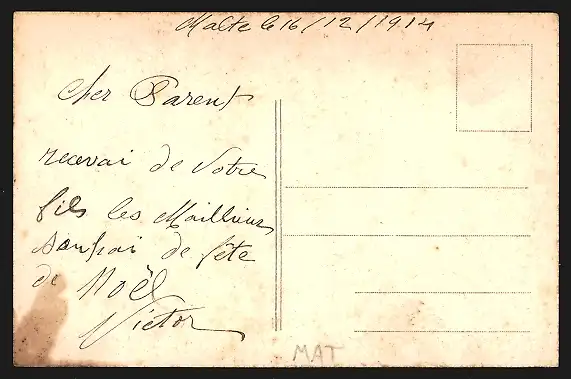 Malte le 16/12/1914
Cher Parent
recevai de Votre
fils les Maillieurs
souhai de fête
de Noël
Victor
MAT